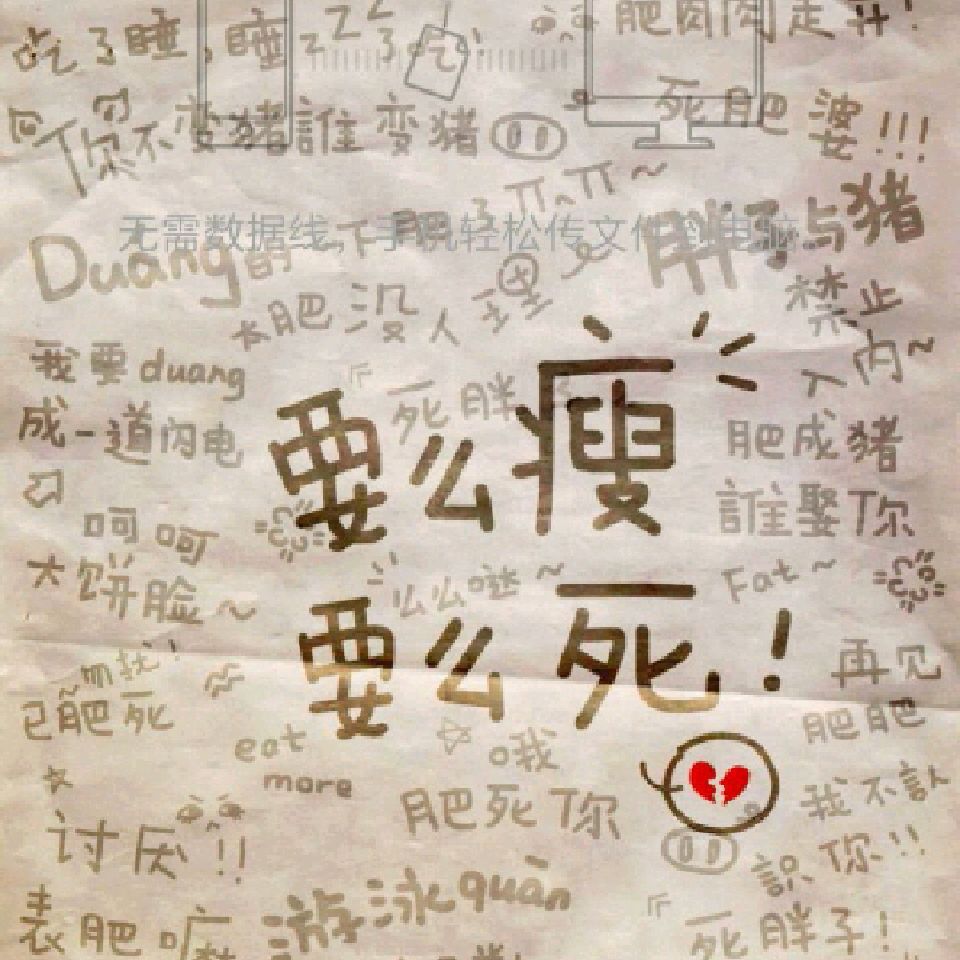 吃了睡,睡了吃!
肥肉肉走开!
你不变猪誰变猪
死肥婆!!!
无需数据线,手机轻松传文件到电脑
胖子与猪
禁止
入内~
Duang的一下肥了
太肥没人理
我要duang
成一道闪电
死胖
要么瘦
肥成猪
誰娶你
呵呵
大饼脸~
么么哒~
Fat~
要么死!
勿扰!
已肥死
再见
肥肥
eat
more
哦我
肥死你
我不認
識你!!
讨厌!!
表肥
游泳quān
死胖子!